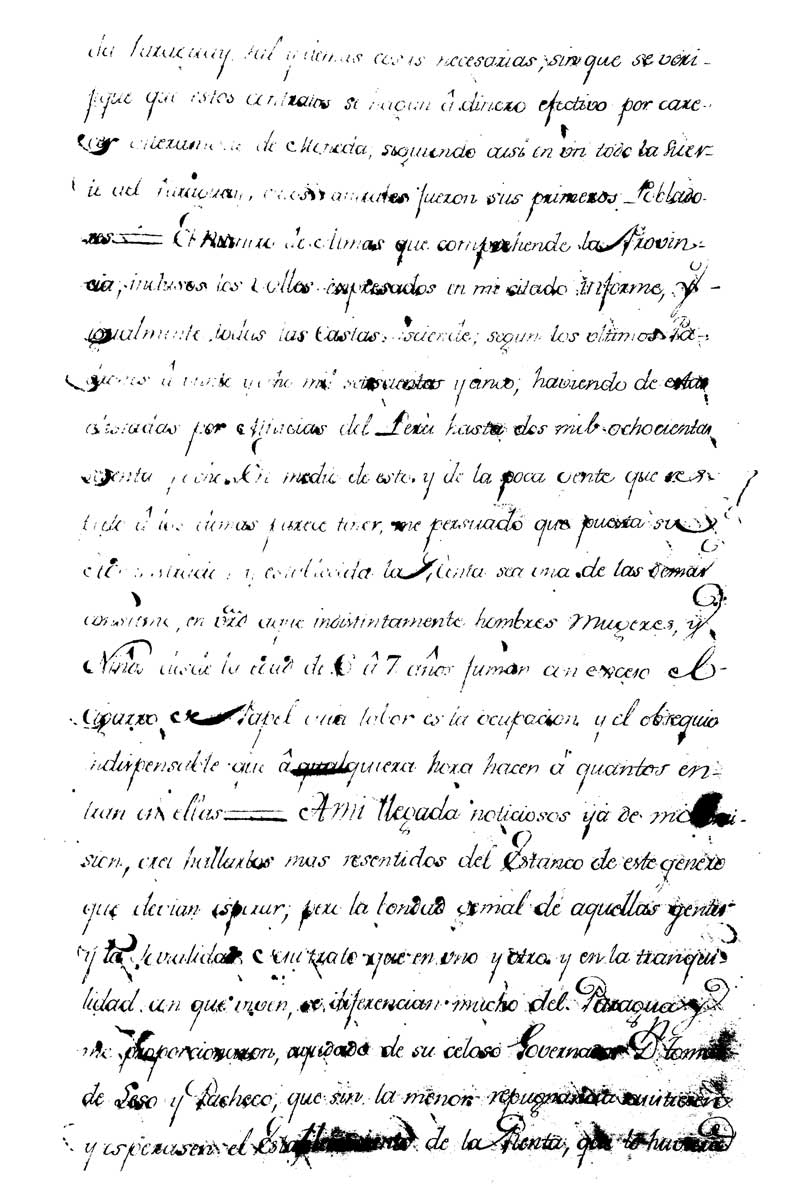 del Paraguay, sal y demas cosas necesarias; sin que se veri-
fique que estos contratos se hagan â dinero efectivo por care-
cer enteramente de Moneda, siguiendo asi en un todo la suer-
te del Paraguay, cuios naturales fueron sus primeros Poblado-
res= El Numero de Almas que comprehende la Provin-
cia, inclusos los Valles expresados en mi citado Informe, y
igualmente todas las Castas, asciende, segun los ultimos Pa-
drones â veinte y ocho mil seiscientos y cinco; haviendo de estas
por Milicias del Perù hasta dos mil ochocientas
sesenta y ocho. En medio de esto, y de la poca gente que res-
â los demas parece tener, me persuado que puesta su
y establecida la Renta sea una de las demas
consume, en a que indistintamente hombres Mugeres, y
Niños desde la edad de 6 â 7 años fuman con exceso el
Cigarro de Papel cuia labor es la ocupacion y el obsequio
indispensable que â qualquiera hora hacen â quantos en-
tran en ellas= A mi llegada noticiosos yá de mi Comi-
sion, crei hallarlos mas resentidos del Estanco de este genero
que devian esperar; pero la bondad genial de aquellas gentes
y la que en uno y otro y en la tranqui-
lidad con que viven, se diferencian mucho del Paraguay
me proporcionaron, ayudado de su celoso Governador Dn
de Leso y Pacheco, que sin la menor repugnancia
y esperasen el Establecimiento de la Renta, que